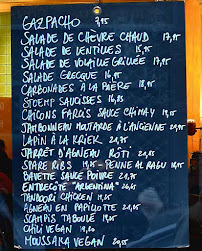 GAZPACHO 7,95
SALADE DE CHÈVRE CHAUD 17,95
SALADE DE LENTILLES 16,95
SALADE DE VOLAILLE GRILLÉE 17,95
SALADE GRECQUE 16,95
CARBONADES À LA BIÈRE 18,95
STOEMP SAUCISSES 16,85
CHICONS FARCIS SAUCE CHIMAY 19,95
JAMBONNEAU MOUTARDE À L'ANCIENNE
LAPIN À LA KRIEK
JARRET D'AGNEAU RÔTI
SPARE RIBS PENNE AL RAGU
BAVETTE SAUCE POIVRE
ENTRECÔTE "ARGENTINA"
TANDOORI CHICKEN
AGNEAU EN PAPILLOTE
SCAMPIS TABOULÉ
CHILI VEGAN
MOUSSAKA VEGAN